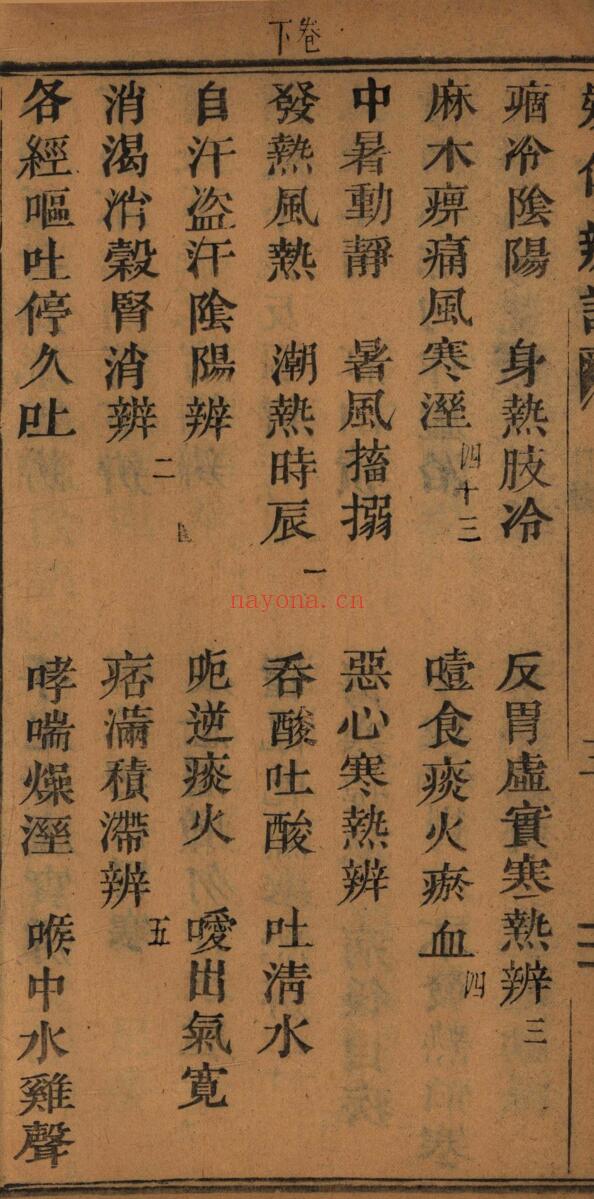 卷下
痼冷陰陽 身熱肢冷 反胃虛實寒熱辨 三
麻木痺痛風寒溼 四十三 噎食痰火瘀血 四
中暑動靜 暑風搐搦 惡心寒熱辨
發熱風熱 潮熱時辰 一 吞酸吐酸 吐清水
自汗盜汗陰陽辨 呃逆痰火 噯出氣寬
消渴消穀腎消辨 二 痞滿積滯辨 五
各經嘔吐停久吐 哮喘燥溼 喉中水雞聲
nayona.cn